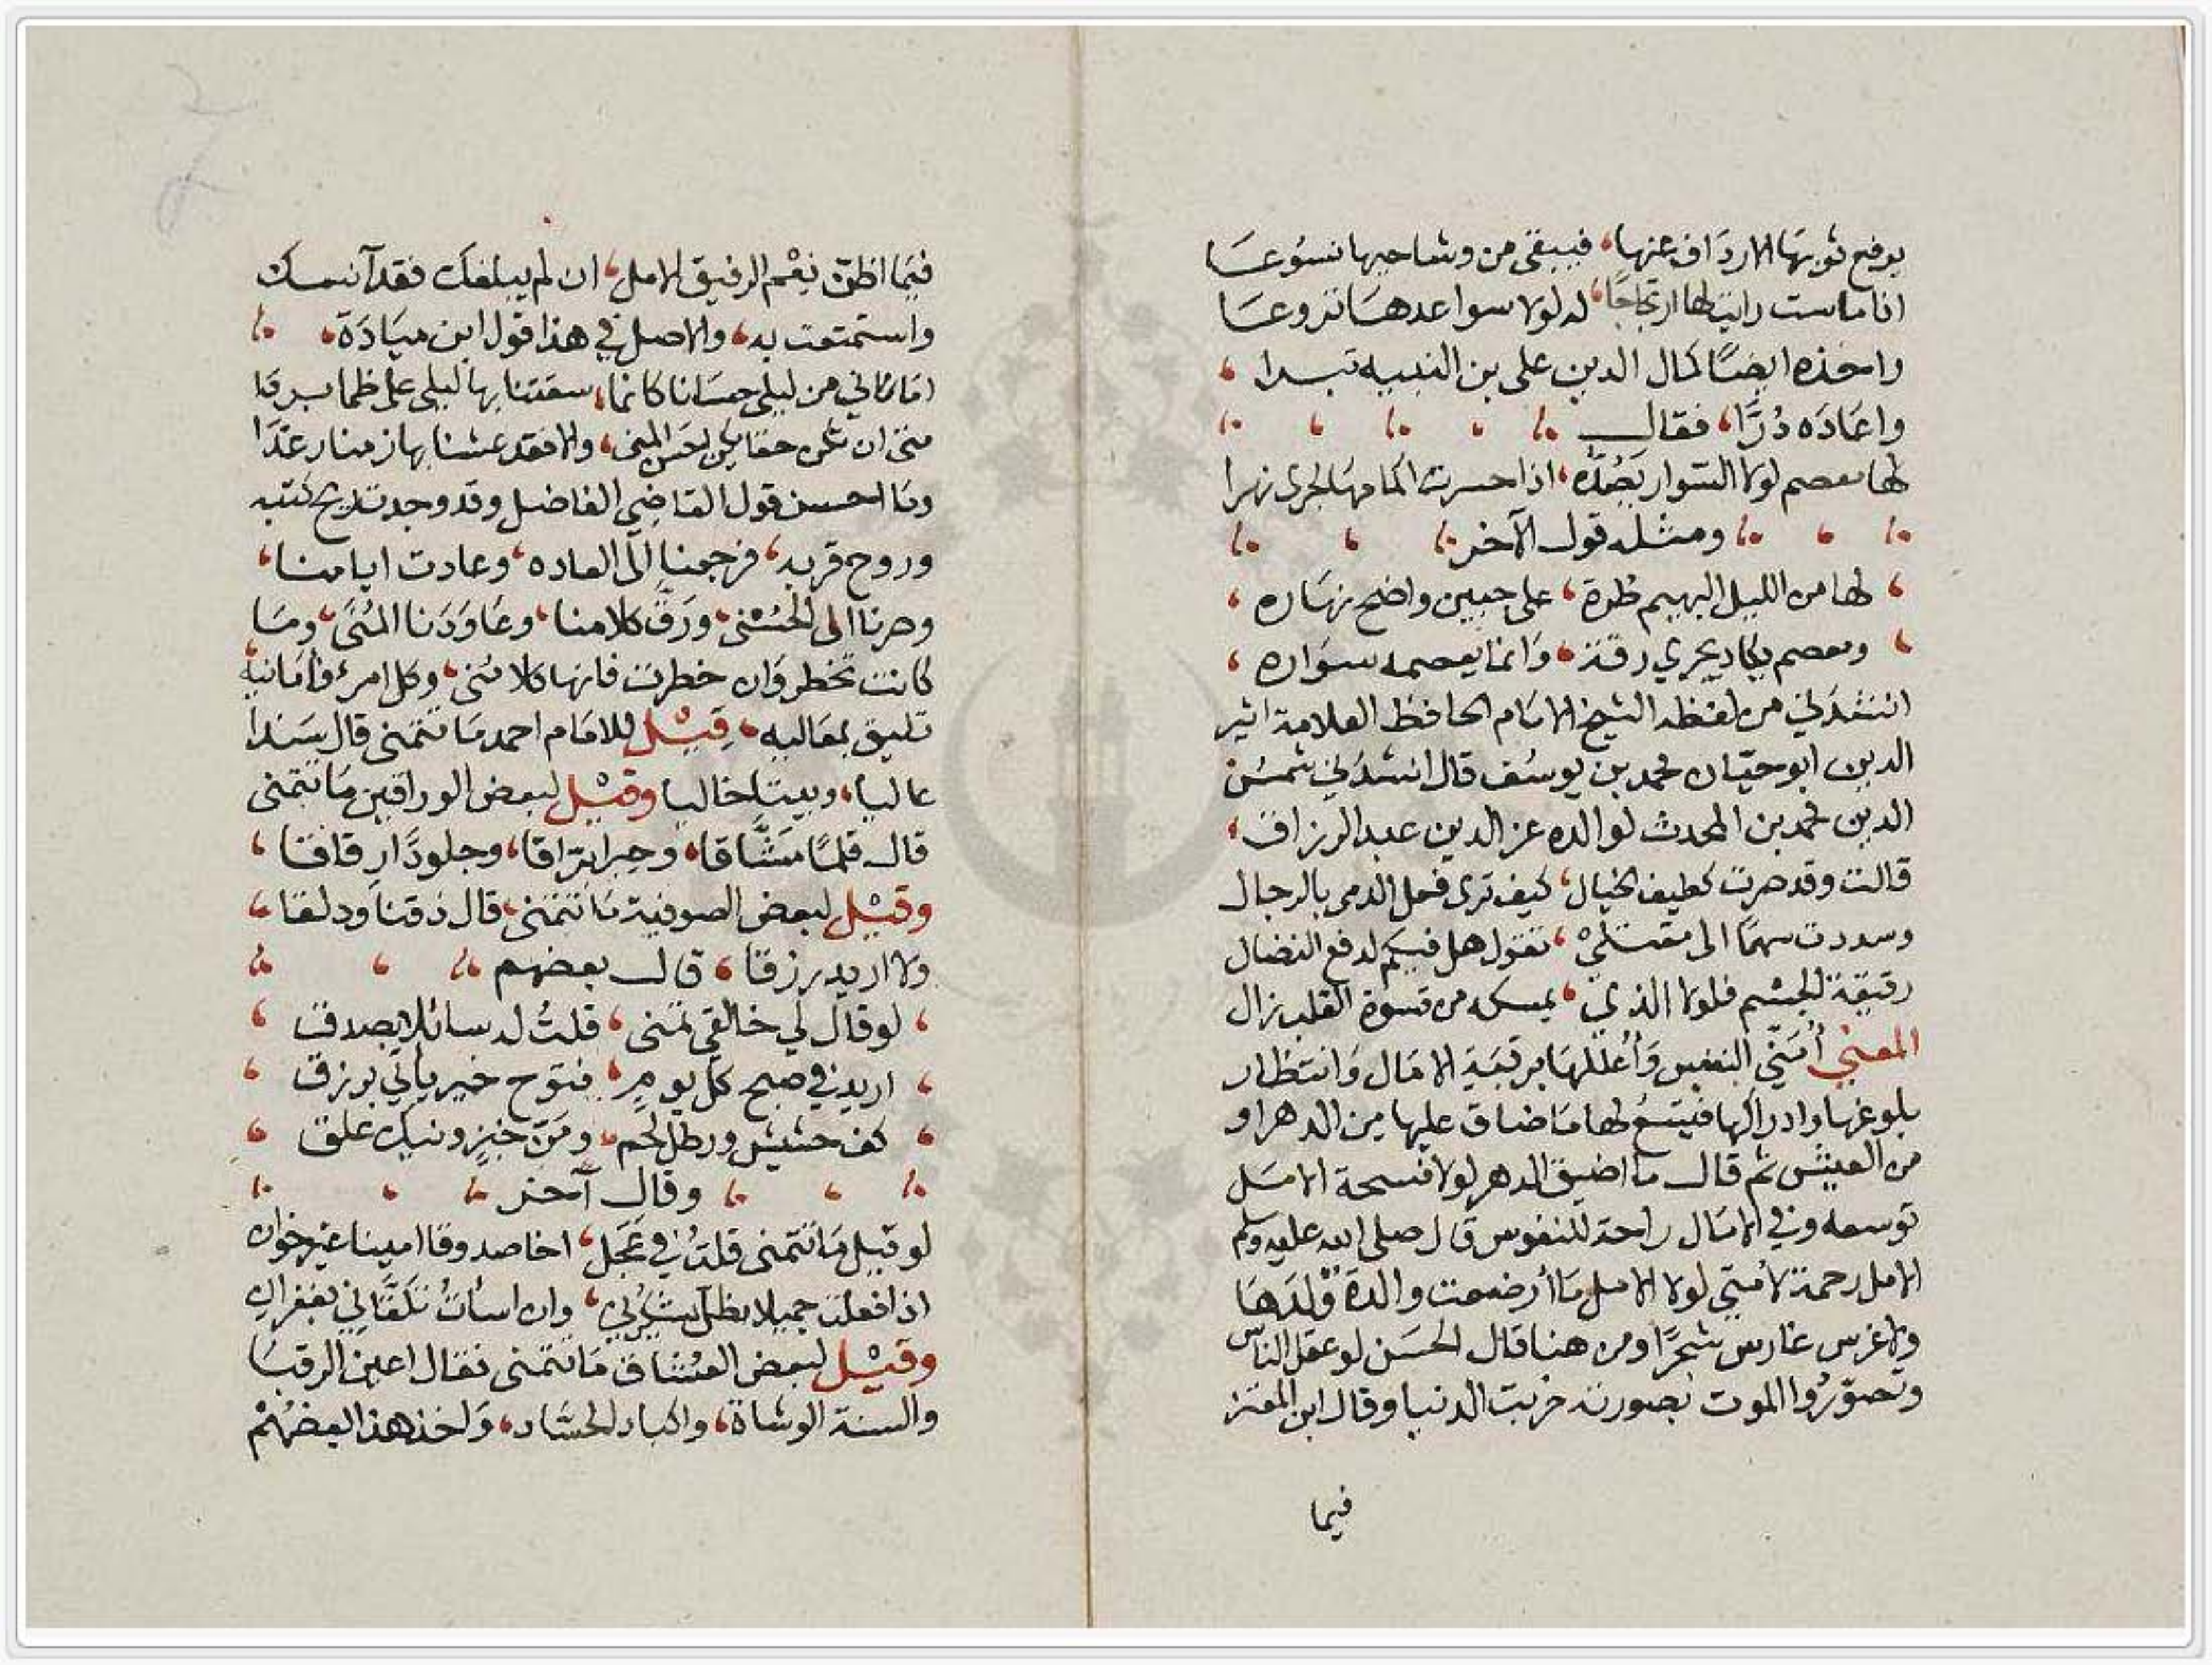 يرفع ثوبها الارداف عنها، فيبقى من وشاحيها شسوعا
اذا ماست رايت لها ارتجاجا، له لولا سواعدها نزوعا
واخذه ايضًا كمال الدين على بن النبيه تبرا،
واعَادَه دُرًّا، فقال
لها معصم لولا السوار يَصُدّه، اذا حسرت اكمامها لجرى نهرا
ومثله قول الآخر
لها من الليل البهيم طرة، على جبين واضح نهاره،
ومعصم يكاد يجري رقة، وَانما يعصمه سوَاره،
انشدني من لفظه الشيخ الامام الحافظ العلامة اثير
الدين ابو حيّان محمد بن يوسُف قال انشدني شمسُ
الدين محمد بن المحدث لوالده عز الدين عبد الرزاق،
قالت وقد صرت كطيف الخيال، كيف ترى فعل الدمى بالرجال
وسددت سهمًا الى مقتلي، تقول هل فيكم لدفع النضال
رقيقة الجسم فلولا الذي، يمسكه من قسوة القلب زال
المعنى أُمَنّي النفس وَأُعللها برقبَة الامَال وَانتظار
بلوغها وادراكها فيتسعُ لها مَا ضاق عليها مِن الدهر او
من العيش ثم قال ما اضيق الدهر لولا فسحة الامَل
توسعه وفي الامَال راحة للنفوس قال صلى الله عليه وسلم
الامل رحمة لأمتي لولا الامل مَا أرضعت والدة وَلدَهَا
ولا غرس غارس شجرًا ومن هنا قال الحسَن لو عقل الناس
وتصوّرُوا الموت بصورته خربت الدنيا وقال ابن المعتز
فيما
فيمَا اظنّ نِعْم الرفيق الامل، ان لم يبلغك فقد آنسك
واستمتعت به، والاصل في هذا قول ابن ميَادَة،
امَانيّ من ليلى حسَانا كانما، سقتنا بها ليلى على ظما بردا
منى ان تكن حقا يكن احسَن المنى، والا فقد عشنا بها زمنا رغَدَا
ومَا احسن قول القاضي الفاضل وقد وجدت ريح كتبه
وروح قربه، فرجعنا الى العاده، وعادت ايامنا،
وصرنا الى الحُسْنى، ورَقَّ كلامنا، وعَاوَدَنا المُنَى، ومَا
كانت تخطر وَان خطرت فانها كلا مُنى، وكل امرئ فامَانيه
تليق بمعَاليه، قِيْل للامَام احمد مَا تتمنى قال سَندا
عاليا، وبيتا خاليا وقيْل لبعض الوراقين مَا تتمنى
قال قلمًا مَشَّاقا، وحِبرا بَرّاقا، وجلودًا رِقاقا،
وقيْل لبعض الصوفية مَا تتمنى، قال ذقنا ودلقا،
ولا اريد رزقا، قال بعضهم
لو قال لي خالقي تمنى، قلتُ له سائلا بصدق،
اريد في صبح كل يومٍ، فتوح خير ياتي برزق،
كف حشيش ورطل لحم، ومَنّ خبزٍ ونيك علق،
وقال آخر
لو قيل مَا تتمنى قلتُ في عَجَل، اخا صدوقا امينا غير خوان
اذا فعلت جميلا ظل يشكُرني، وان اسأتُ تَلقَّاني بغفران
وقيْل لبعض العشاق مَا تتمنى فقال اعين الرقبَا
والسنة الوشاة، واكباد الحسَّاد، وَاخذ هذا بعضهُمْ